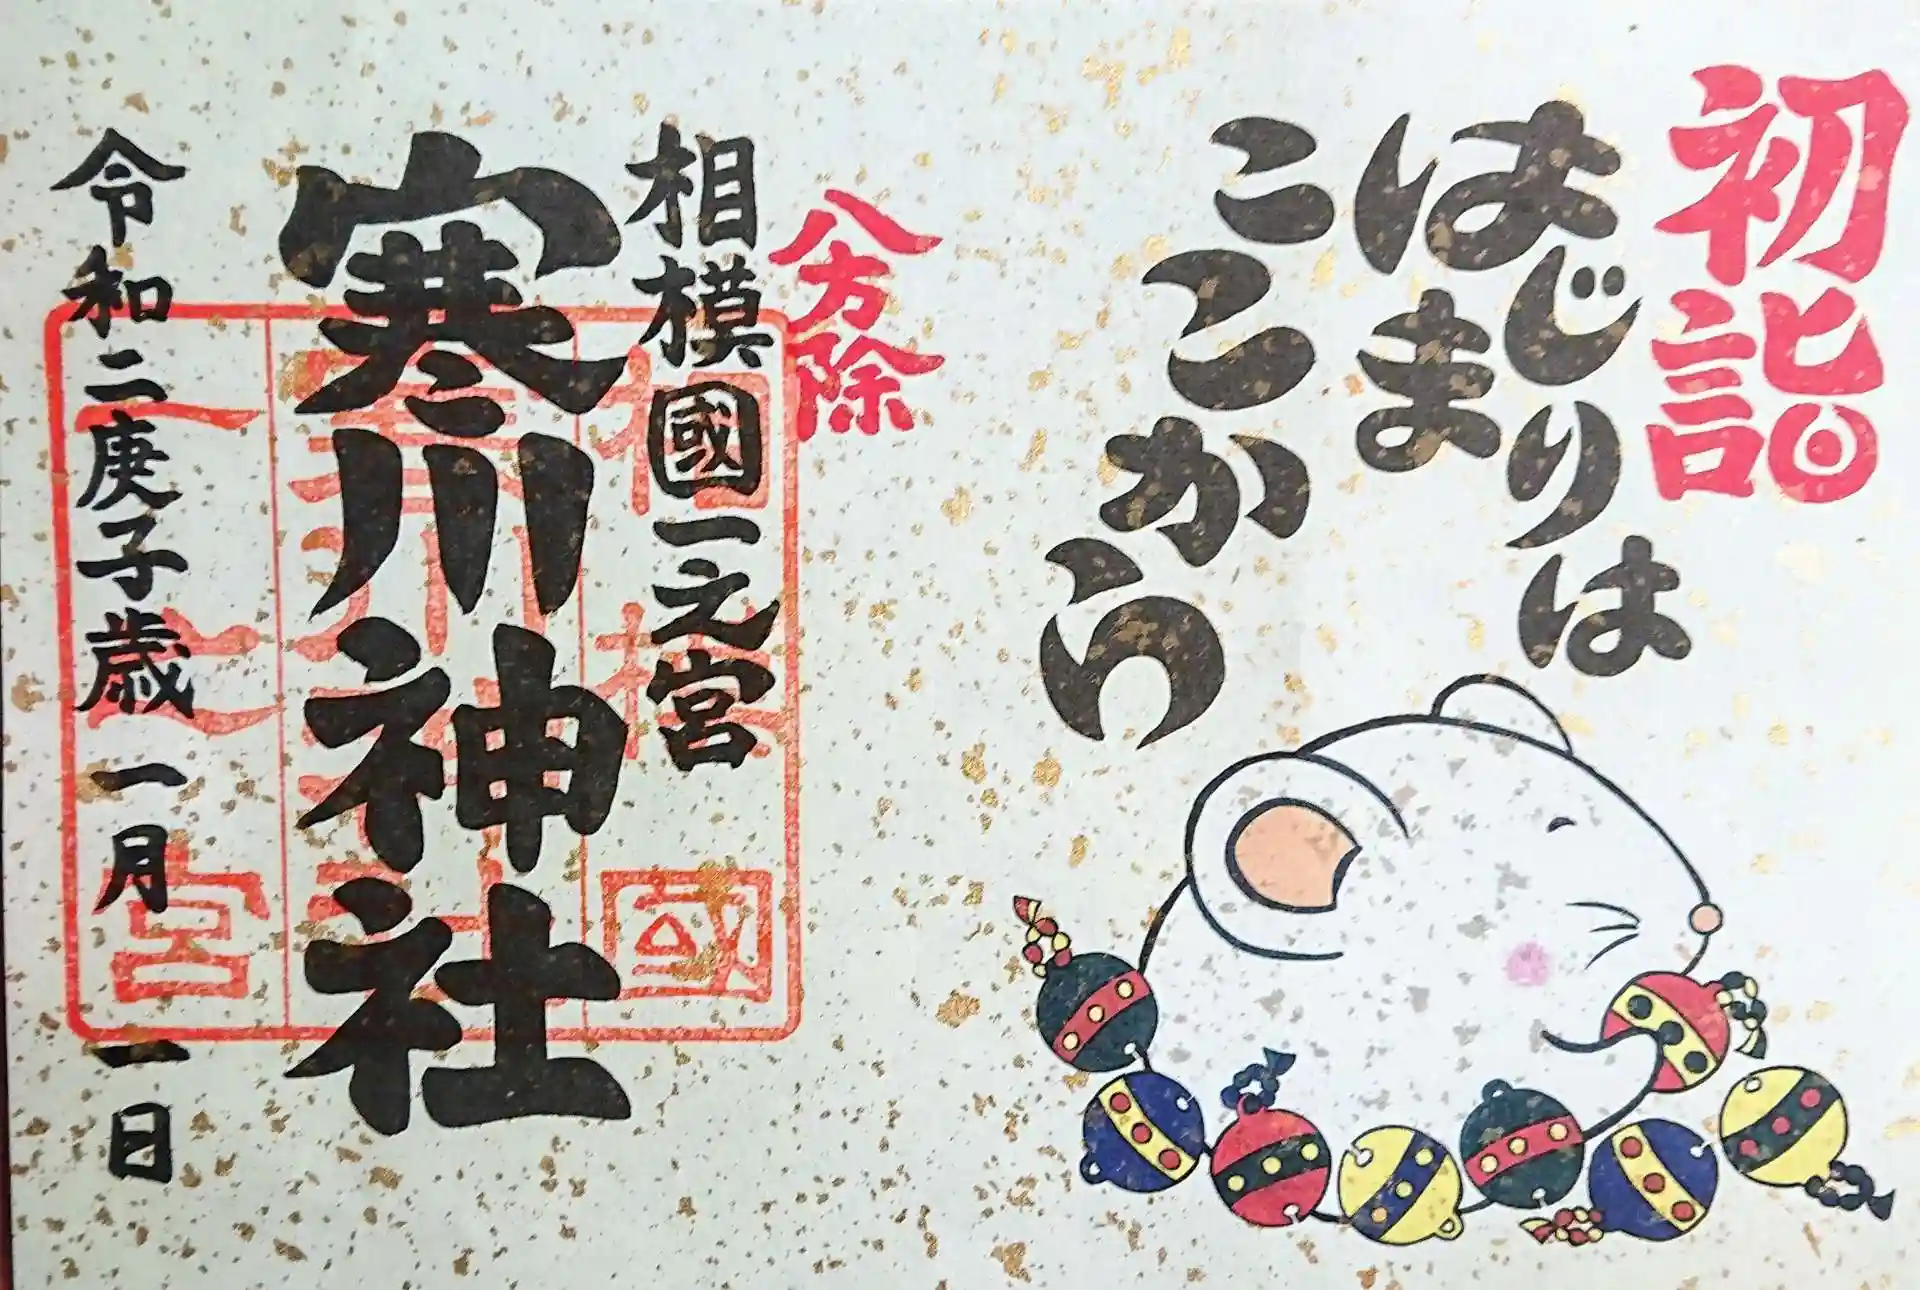 初詣
はじまりは
はじまりは
ここから
八方除
相模國一之宮
寒川神社
令和二庚子歳 一月 一日
相模國
寒川神社
一之宮